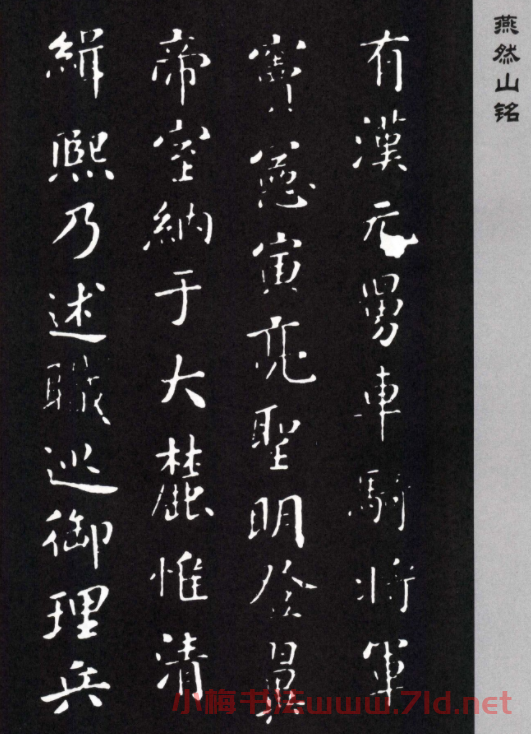 燕然山铭
有漢元舅車騎将軍
竇憲寅亮聖明登翼
帝室納于大麓惟清
緝熙乃述職巡御理兵
小梅书法www.7ld.net